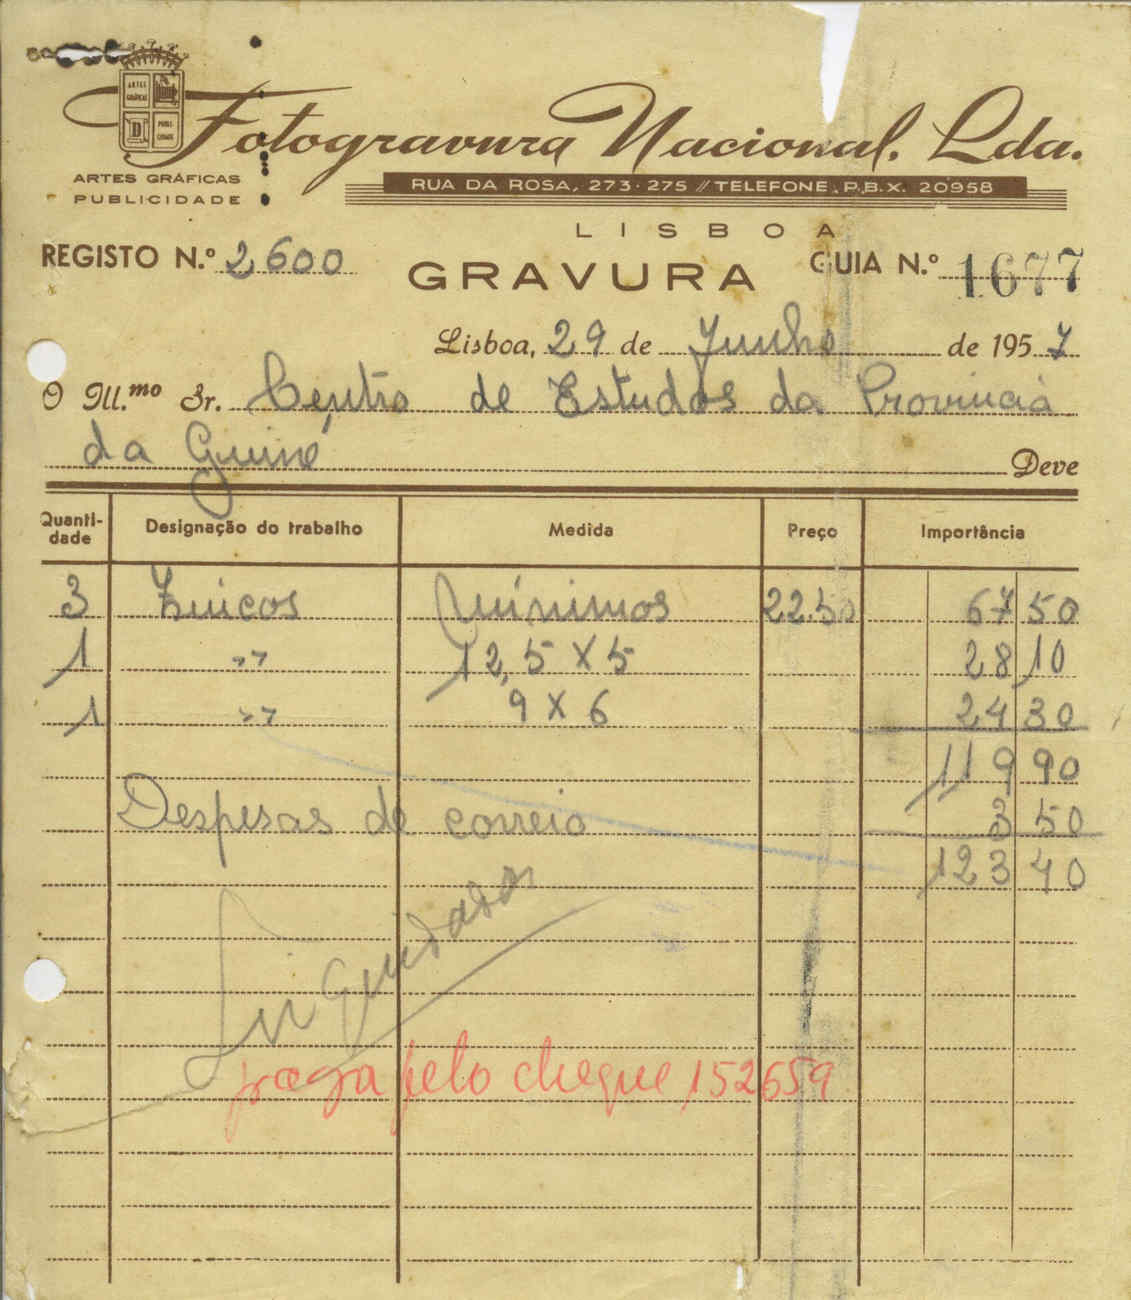 ARTES GRÁFICAS
D
PUBLICIDADE
Fotogravura Nacional, Lda.
ARTES GRÁFICAS
PUBLICIDADE
RUA DA ROSA, 273-275 // TELEFONE, P.B.X. 20958
LISBOA
REGISTO N.º 2600
GRAVURA
GUIA N.º 1677
Lisboa, 29 de Junho de 1957
O Ill.mo Sr. Centro de Estudos da Provincia
da Guiné
Deve
Quantidade Designação do trabalho Medida Preço Importância
3 Zincos Mínimos 22.50 67 50
1 " 12,5 X 5 28 10
1 " 9 X 6 24 30
119 90
Despesas de correio 3 50
123 40
paga pelo cheque 152659